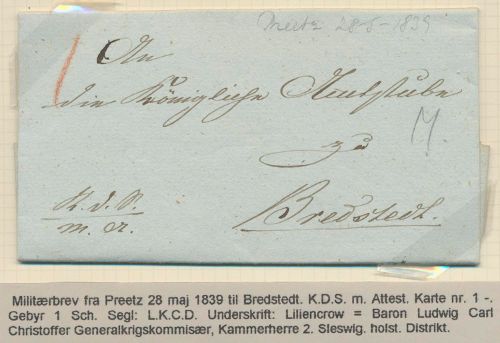 Preetz 28-5-1839
An
die Königliche Amtstube
M
zu
Bredstedt.
K. d. S.
m. A.
Militærbrev fra Preetz 28 maj 1839 til Bredstedt. K.D.S. m. Attest. Karte nr. 1 -.
Gebyr 1 Sch. Segl: L.K.C.D. Underskrift: Liliencrow = Baron Ludwig Carl
Christoffer Generalkrigskommisær, Kammerherre 2. Sleswig. holst. Distrikt.